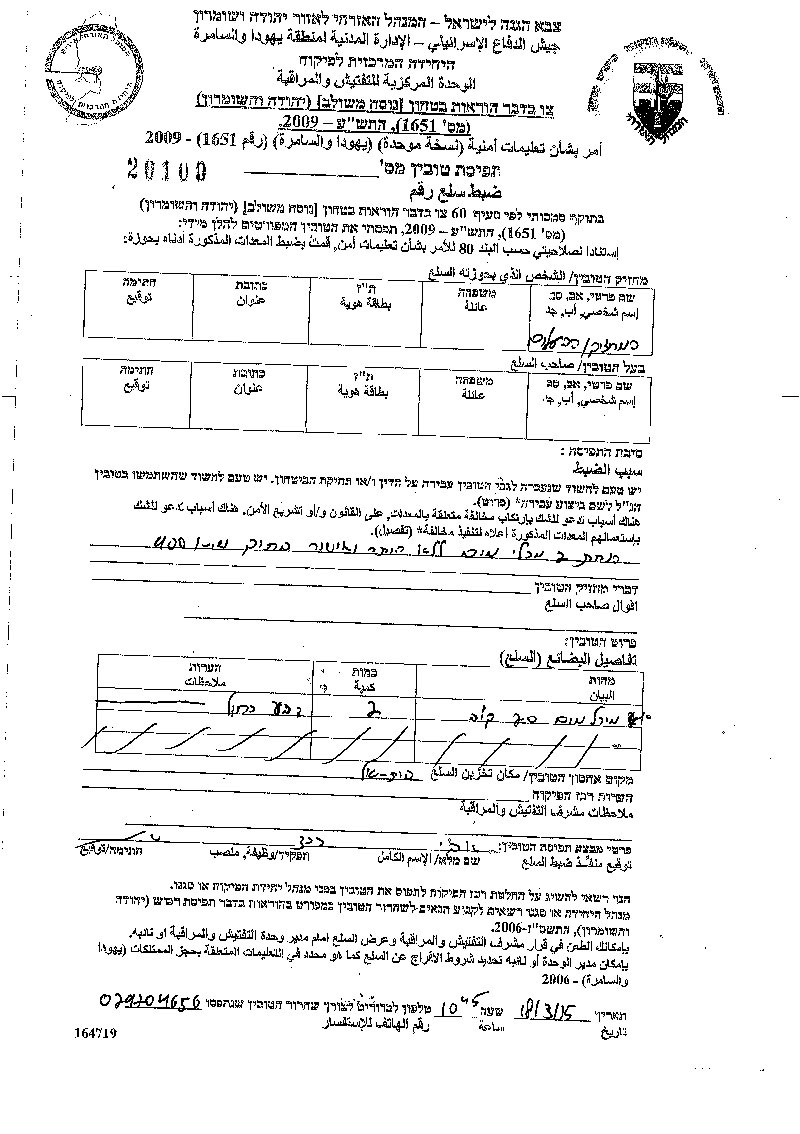 צבא הגנה לישראל – המנהל האזרחי לאזור יהודה ושומרון
جيش الدفاع الإسرائيلي – الإدارة المدنية لمنطقة يهودا والسامرة
היחידה המרכזית לפיקוח
الوحدة المركزية للتفتيش والمراقبة
צו בדבר הוראות בטחון [נוסח משולב] (יהודה והשומרון)
(מס' 1651), התש"ע – 2009.
أمر بشأن تعليمات أمنية (نسخة موحدة) (يهودا والسامرة) (رقم 1651) - 2009
תפיסת טובין מס' 20100
ضبط سلع رقم
בתוקף סמכותי לפי סעיף 60 צו בדבר הוראות בטחון [נוסח משולב] (יהודה והשומרון)
(מס' 1651), התש"ע – 2009, תפסתי את הטובין המפורטים להלן מידי:
إستنادا لصلاحيتي حسب البند 80 للأمر بشأن تعليمات أمن, قمت بضبط المعدات المذكورة أدناه بحوزة:
מחזיק הטובין/ الشخص الذي بحوزته السلع
שם פרטי, אב, סב משפחה ת"ז כתובת חתימה
إسم شخصي, أب, جد عائلة بطاقة هوية عنوان توقيع
בעל הטובין/ صاحب السلع
שם פרטי, אב, סב משפחה ת"ז כתובת חתימה
إسم شخصي, أب, جد عائلة بطاقة هوية عنوان توقيع
סיבת התפיסה :
سبب الضبط
יש טעם לחשוד שנעברה לגבי הטובין עבירה על הדין ו/או תחיקת הביטחון. יש טעם לחשוד שהשתמשו בטובין
הנ"ל לשם ביצוע עבירה* (פרוט).
هناك أسباب تدعو للشك بإرتكاب مخالفة متعلقة بالمعدات, على القانون و/أو تشريع الأمن. هناك أسباب تدعو للشك
بإستعمالهم المعدات المذكورة أعلاه لتنفيذ مخالفة* (تفصيل).
הנחת 2 מכלי מים ללא היתר ואישור
דברי מחזיק הטובין
اقوال صاحب السلع
פרוט הטובין:
تفاصيل البضائع (السلع)
מהות כמות הערות
البيان كمية ملاحظات
מיכל מים 2 צבע כחול
מקום אחסון הטובין/ مكان تخزين السلع
הערות רכז הפיקוח
ملاحظات مشرف التفتيش والمراقبة
פרטי מבצע תפיסת הטובין: רכז
توقيع منفّذ ضبط السلع שם מלא/ الإسم الكامل תפקיד/وظيفة, منصب חתימה/توقيع
הנך רשאי להשיג על החלטת רכז הפיקוח לתפוס את הטובין בפני מנהל יחידת הפיקוח או סגנו.
מנהל היחידה או סגנו רשאים לקבוע תנאים לשחרור הטובין כמפורט בהוראות בדבר תפיסת רכוש (יהודה
והשומרון), התשס"ו-2006.
بإمكانك الطعن في قرار مشرف التفتيش والمراقبة وعرض السلع امام مدير وحدة التفتيش والمراقبة او نائبه.
بإمكان مدير الوحدة أو نائبه تحديد شروط الافراج عن السلع كما هو محدد في التعليمات المتعلقة بحجز الممتلكات (يهودا
والسامرة) – 2006
תאריך 18/3/15 שעה 10 45 טלפון לבירורים לצורך שחרור הטובין שנתפסו 029204656
تاريخ ساعة رقم الهاتف للإستفسار
164719